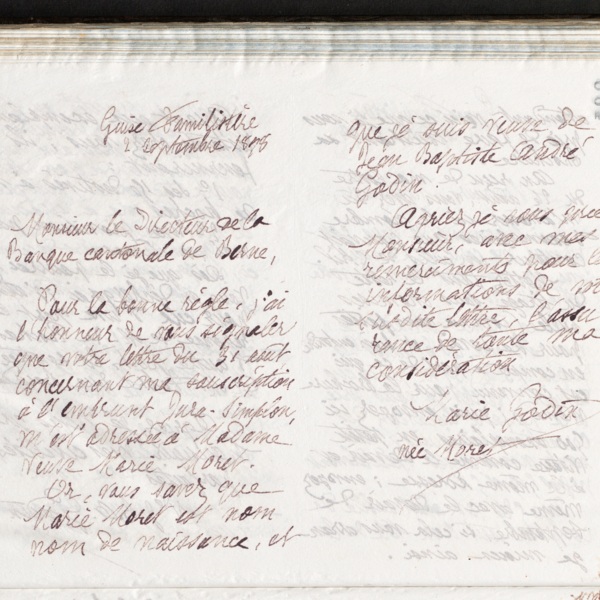 Guise Familistère
2 Septembre 1898
Monsieur le Directeur de la
Banque cantonale de Berne,
Pour la bonne règle, j'ai
l'honneur de vous signaler
que votre lettre du 31 août
concernant ma souscription
à l'emprunt Jura-Simplon,
m'est adressée à Madame
Veuve Marie Moret.
Or, vous savez que
Marie Moret est mon
nom de naissance, et
que je suis veuve de
Jean Baptiste André
Godin.
Agréez je vous prie
Monsieur, avec mes
remerciments pour l
informations de
susdite lettre, l'assu
rance de toute ma
considération
Marie Godin
née Moret